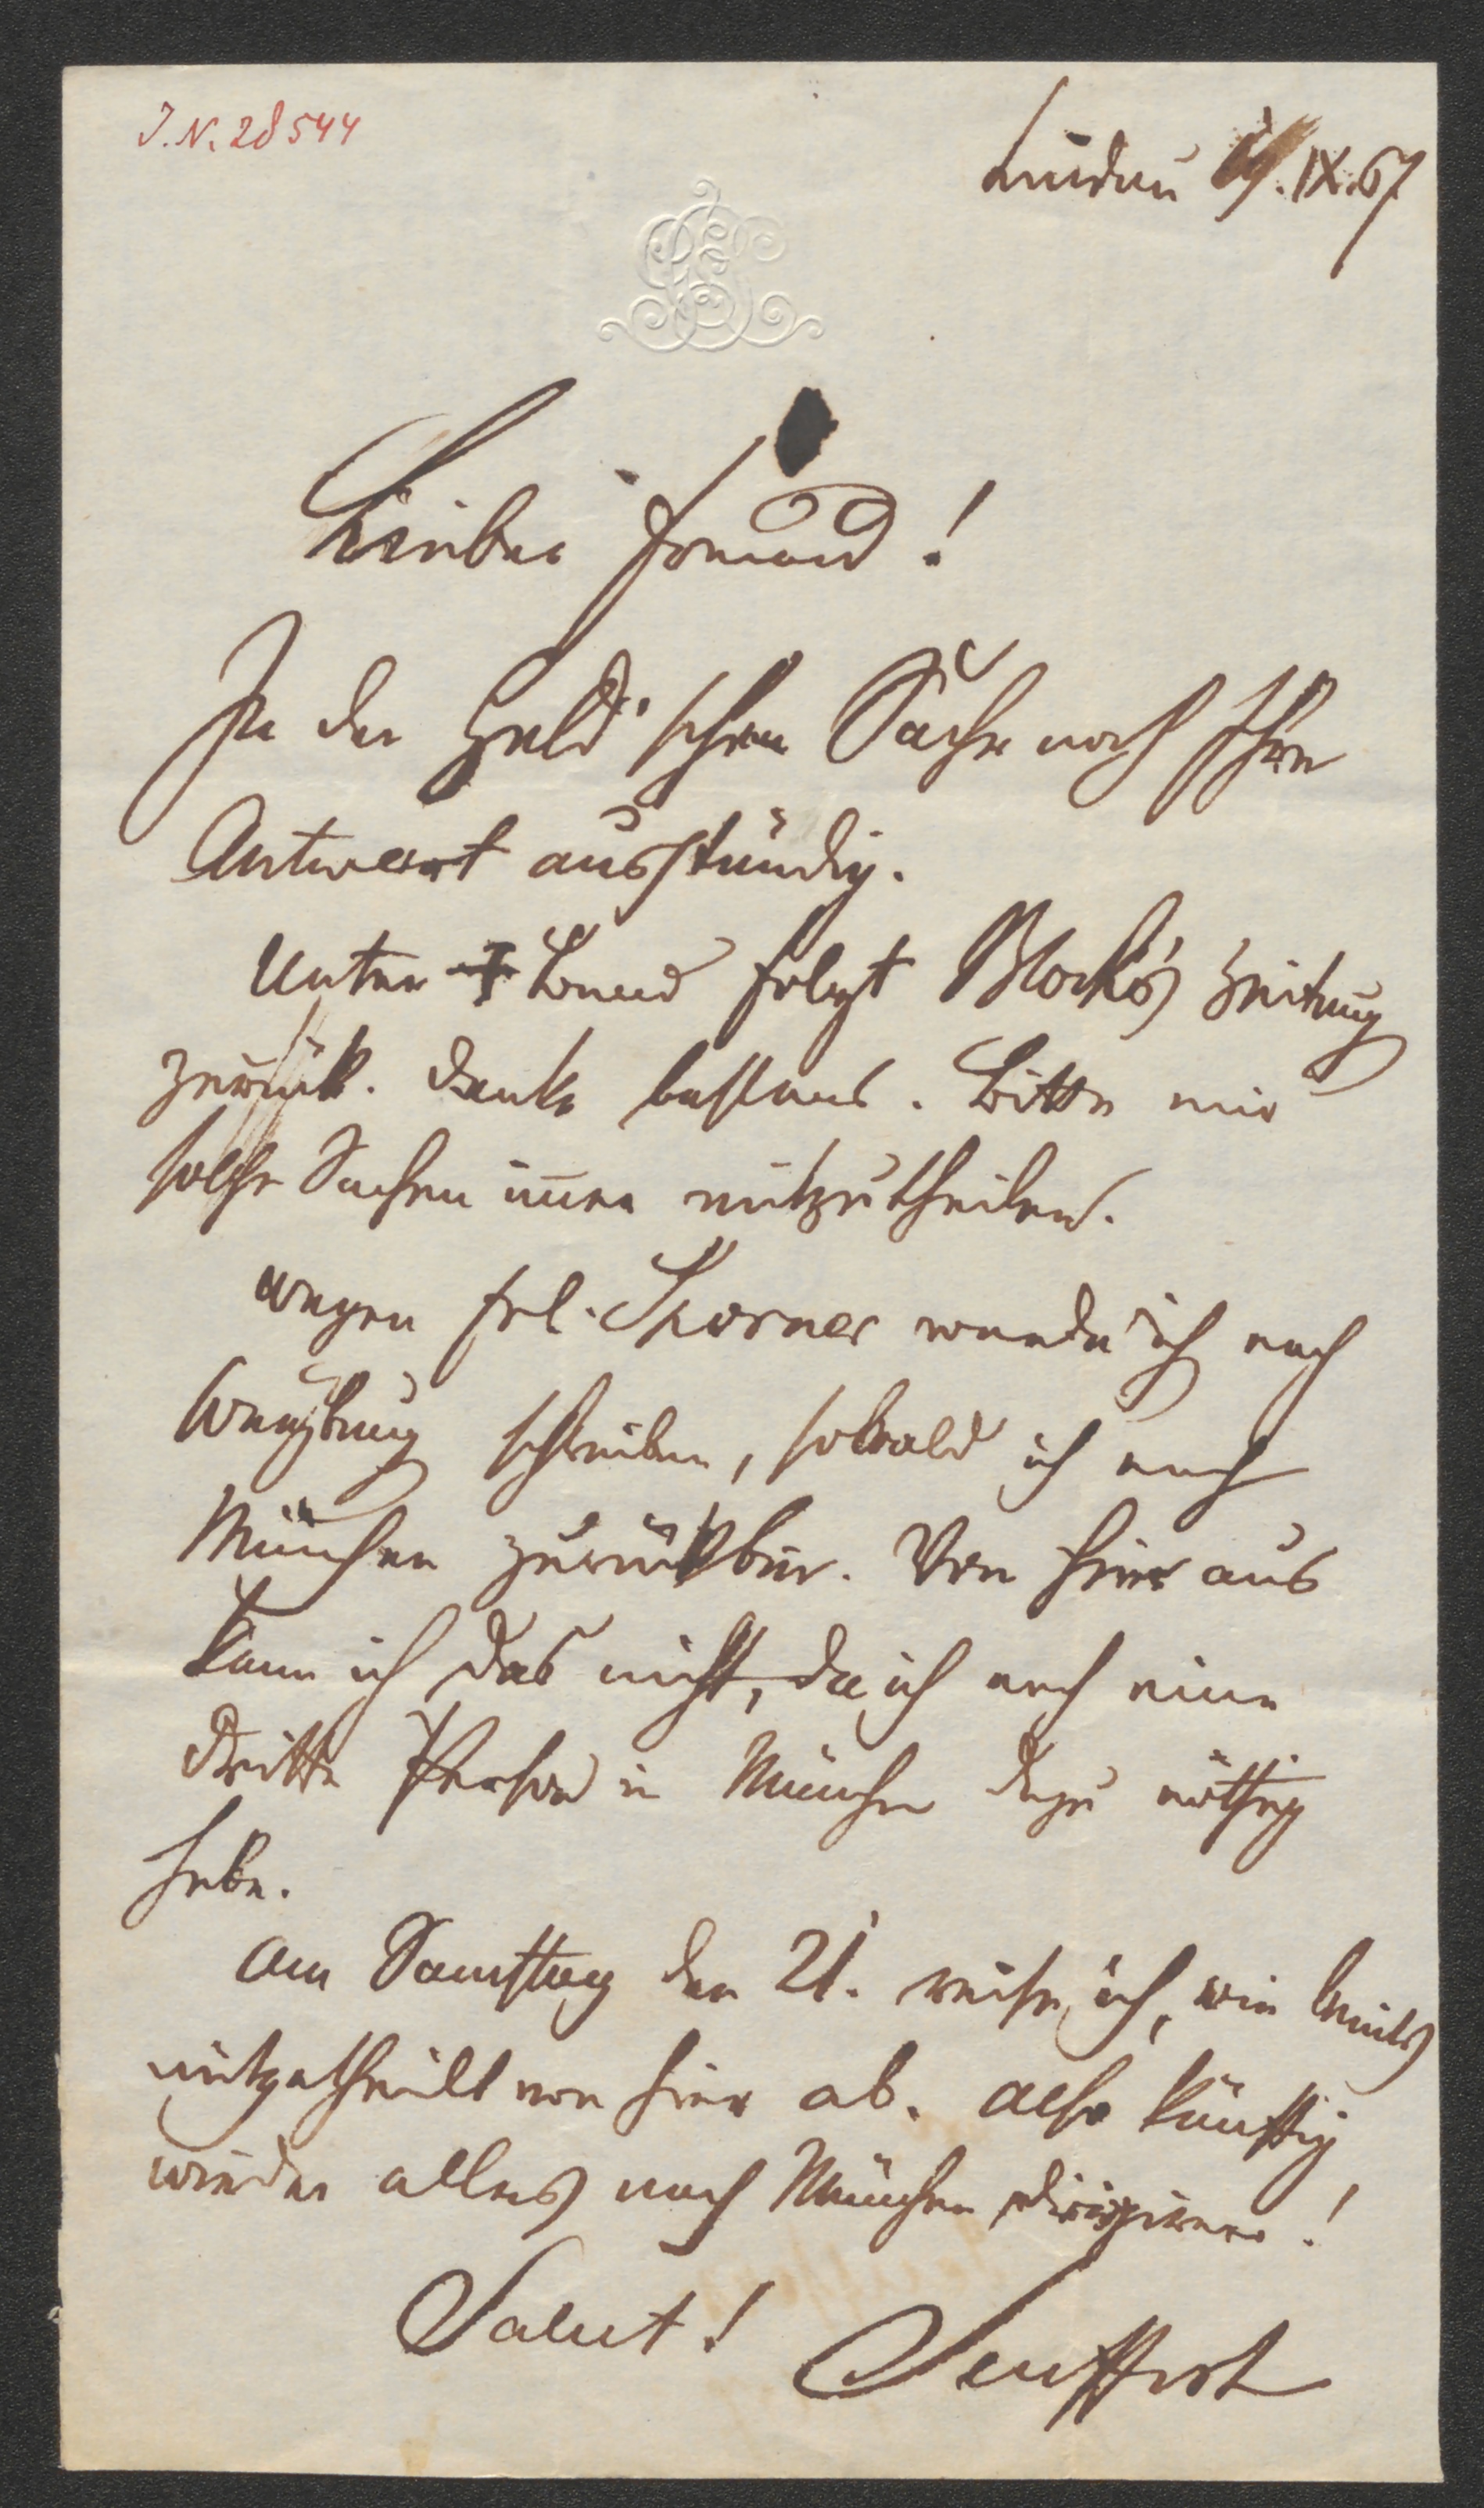 J.N. 28544
Lindau 19. IX. 67
Lieber Freund!
In der Held'schen Sache noch Ihre
Antwort ausständig.
Unter + Band folgt Block's Zeitung
zurück. Danke bestens. Bitte mir
solche Sachen im̄er mitzutheilen.
Wegen Frl. Thorner werde ich nach
Würzburg schreiben, sobald ich nach
München zurück bin. Von hier aus
kann ich das nicht, da ich noch eine
dritte Person in München dazu nöthig
habe.
Am Samstag den 21. reise ich, wie bereits
mitgetheilt von hier ab. Also künftig
wieder alles nach München dirigieren!
Salut! Seuffert